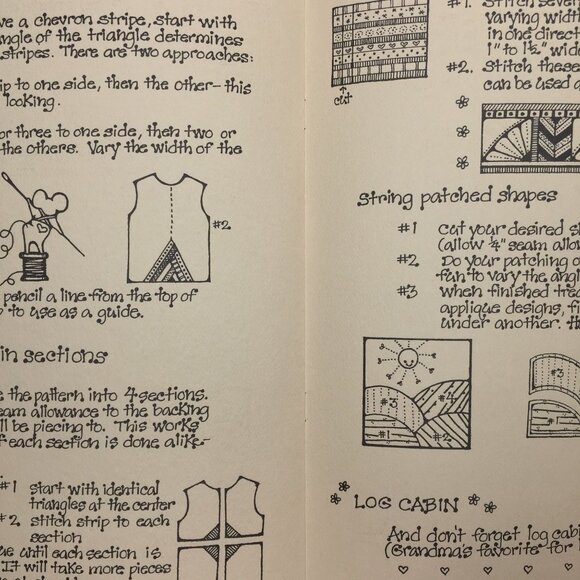 ve a chevron stripe, start with
angle of the triangle determines
stripes. There are two approaches:
ip to one side, then the other - this
looking.
or three to one side, then two or
the others. Vary the width of the
#2
pencil a line from the top of
to use as a guide.
in sections
e the pattern into 4 sections.
eam allowance to the backing
ll be piecing to. This works
f each section is done alike-
#1 start with identical
triangles at the center
#2 stitch strip to each
section
ue until each section is
It will take more pieces
cut
#1. Stitch seve
varying width
in one direct
1" to 1½" wid
#2. Stitch these
can be used a
string patched shapes
#1 cut your desired s
(allow ¼" seam allow
#2 Do your patching o
fun to vary the angl
#3 when finished trea
applique designs, fi
under another.
#3
#4
#1
#2
#3
#1
LOG CABIN
And don't forget log cabi
(Grandma's favorite for